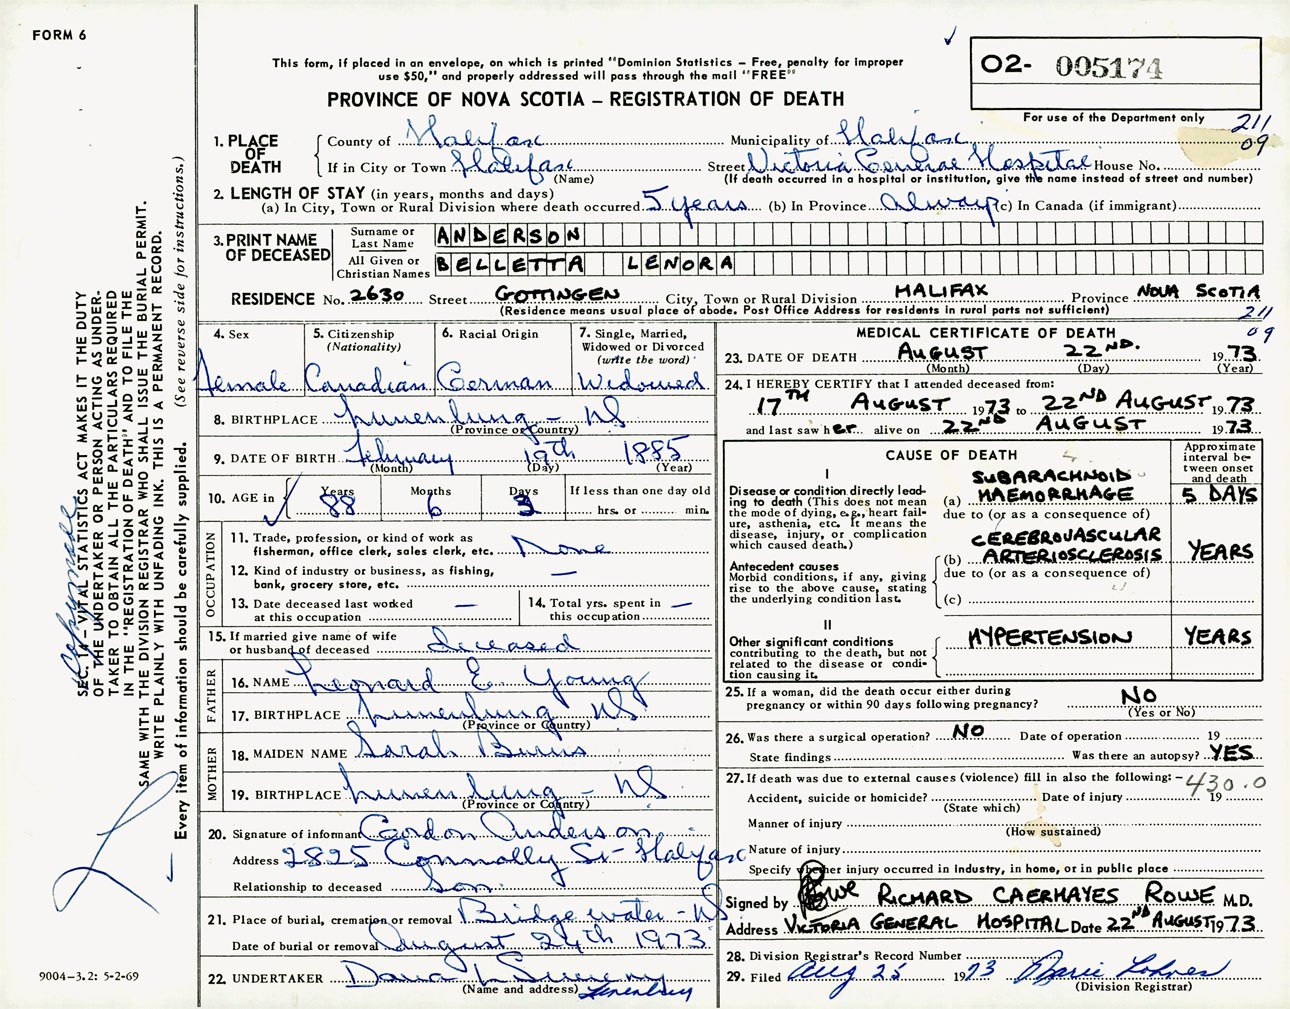 FORM 6
This form, if placed in an envelope, on which is printed "Dominion Statistics – Free, penalty for improper
use $50," and properly addressed will pass through the mail "FREE"
PROVINCE OF NOVA SCOTIA – REGISTRATION OF DEATH
O2- 005174
For use of the Department only
211
09
1. PLACE OF DEATH
County of Halifax Municipality of Halifax
If in City or Town Halifax Street Victoria General Hospital House No.
(Name) (If death occurred in a hospital or institution, give the name instead of street and number)
2. LENGTH OF STAY (in years, months and days)
(a) In City, Town or Rural Division where death occurred 5 years (b) In Province Always (c) In Canada (if immigrant)
3. PRINT NAME OF DECEASED
Surname or Last Name ANDERSON
All Given or Christian Names BELLETTA LENORA
RESIDENCE No. 2630 Street GOTTINGEN City, Town or Rural Division HALIFAX Province NOVA SCOTIA
(Residence means usual place of abode. Post Office Address for residents in rural parts not sufficient)
211
09
4. Sex
female
5. Citizenship
(Nationality)
Canadian
6. Racial Origin
German
7. Single, Married,
Widowed or Divorced
(write the word)
Widowed
8. BIRTHPLACE Lunenburg - NS
(Province or Country)
9. DATE OF BIRTH February 19th 1885
(Month) (Day) (Year)
10. AGE in
Years Months Days If less than one day old
88 6 3 hrs. or min.
OCCUPATION
11. Trade, profession, or kind of work as
fisherman, office clerk, sales clerk, etc. None
12. Kind of industry or business, as fishing,
bank, grocery store, etc. —
13. Date deceased last worked
at this occupation —
14. Total yrs. spent in
this occupation —
15. If married give name of wife
or husband of deceased deceased
FATHER
16. NAME Leonard E Young
17. BIRTHPLACE Lunenburg NS
(Province or Country)
MOTHER
18. MAIDEN NAME Sarah Burns
19. BIRTHPLACE Lunenburg - NS
(Province or Country)
20. Signature of informant Gordon Anderson
Address 2825 Connolly St - Halifax
Relationship to deceased Son
21. Place of burial, cremation or removal Bridgewater - NS
Date of burial or removal August 24th 1973
22. UNDERTAKER Dana L Sweeny
(Name and address) Lunenburg
MEDICAL CERTIFICATE OF DEATH
23. DATE OF DEATH AUGUST 22ND. 1973
(Month) (Day) (Year)
24. I HEREBY CERTIFY that I attended deceased from:
17TH AUGUST 1973 to 22ND AUGUST 1973
and last saw her alive on 22ND AUGUST 1973
CAUSE OF DEATH
Approximate
interval be-
tween onset
and death
I
Disease or condition directly lead-
ing to death (This does not mean
the mode of dying, e.g., heart fail-
ure, asthenia, etc. It means the
disease, injury, or complication
which caused death.)
(a) SUBARACHNOID
HAEMORRHAGE 5 DAYS
due to (or as a consequence of)
Antecedent causes
Morbid conditions, if any, giving
rise to the above cause, stating
the underlying condition last.
(b) CEREBROVASCULAR
ARTERIOSCLEROSIS YEARS
due to (or as a consequence of)
(c)
II
Other significant conditions
contributing to the death, but not
related to the disease or condi-
tion causing it.
HYPERTENSION YEARS
25. If a woman, did the death occur either during
pregnancy or within 90 days following pregnancy? NO
(Yes or No)
26. Was there a surgical operation? NO Date of operation 19
State findings Was there an autopsy? YES
27. If death was due to external causes (violence) fill in also the following: –
430.0
Accident, suicide or homicide? Date of injury 19
(State which)
Manner of injury
(How sustained)
Nature of injury
Specify whether injury occurred in industry, in home, or in public place
Signed by Rowe RICHARD CAERHAYES ROWE M.D.
Address VICTORIA GENERAL HOSPITAL Date 22ND AUGUST 1973
28. Division Registrar's Record Number
29. Filed Aug 25 1973
(Division Registrar)
SEC. 14 – VITAL STATISTICS ACT MAKES IT THE DUTY
OF THE UNDERTAKER OR PERSON ACTING AS UNDER-
TAKER TO OBTAIN ALL THE PARTICULARS REQUIRED
IN THE "REGISTRATION OF DEATH" AND TO FILE THE
SAME WITH THE DIVISION REGISTRAR WHO SHALL ISSUE THE BURIAL PERMIT.
WRITE PLAINLY WITH UNFADING INK. THIS IS A PERMANENT RECORD.
Every item of information should be carefully supplied. (See reverse side for instructions.)
9004–3.2: 5-2-69